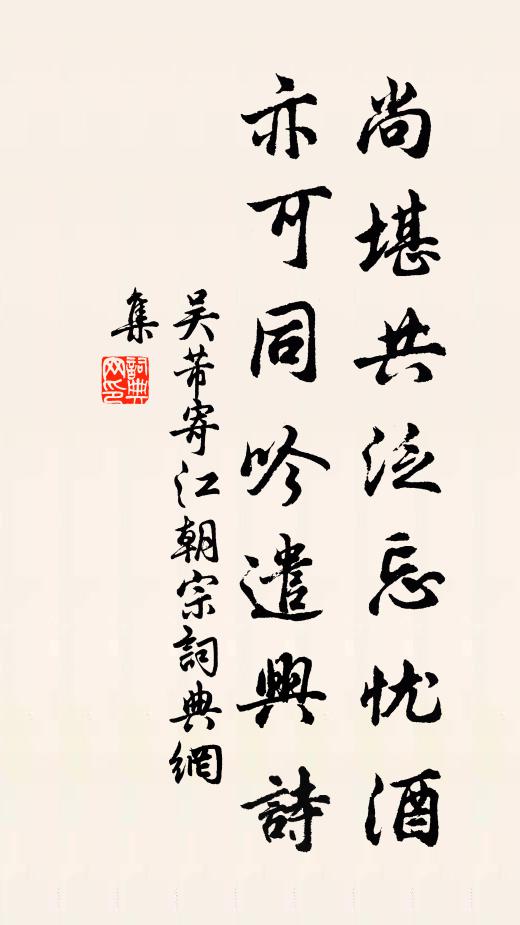 尚堪共泛忘忧酒
亦可同吟遣興詩
吴芾寄江朝宗詞典網
集
詞典
网印